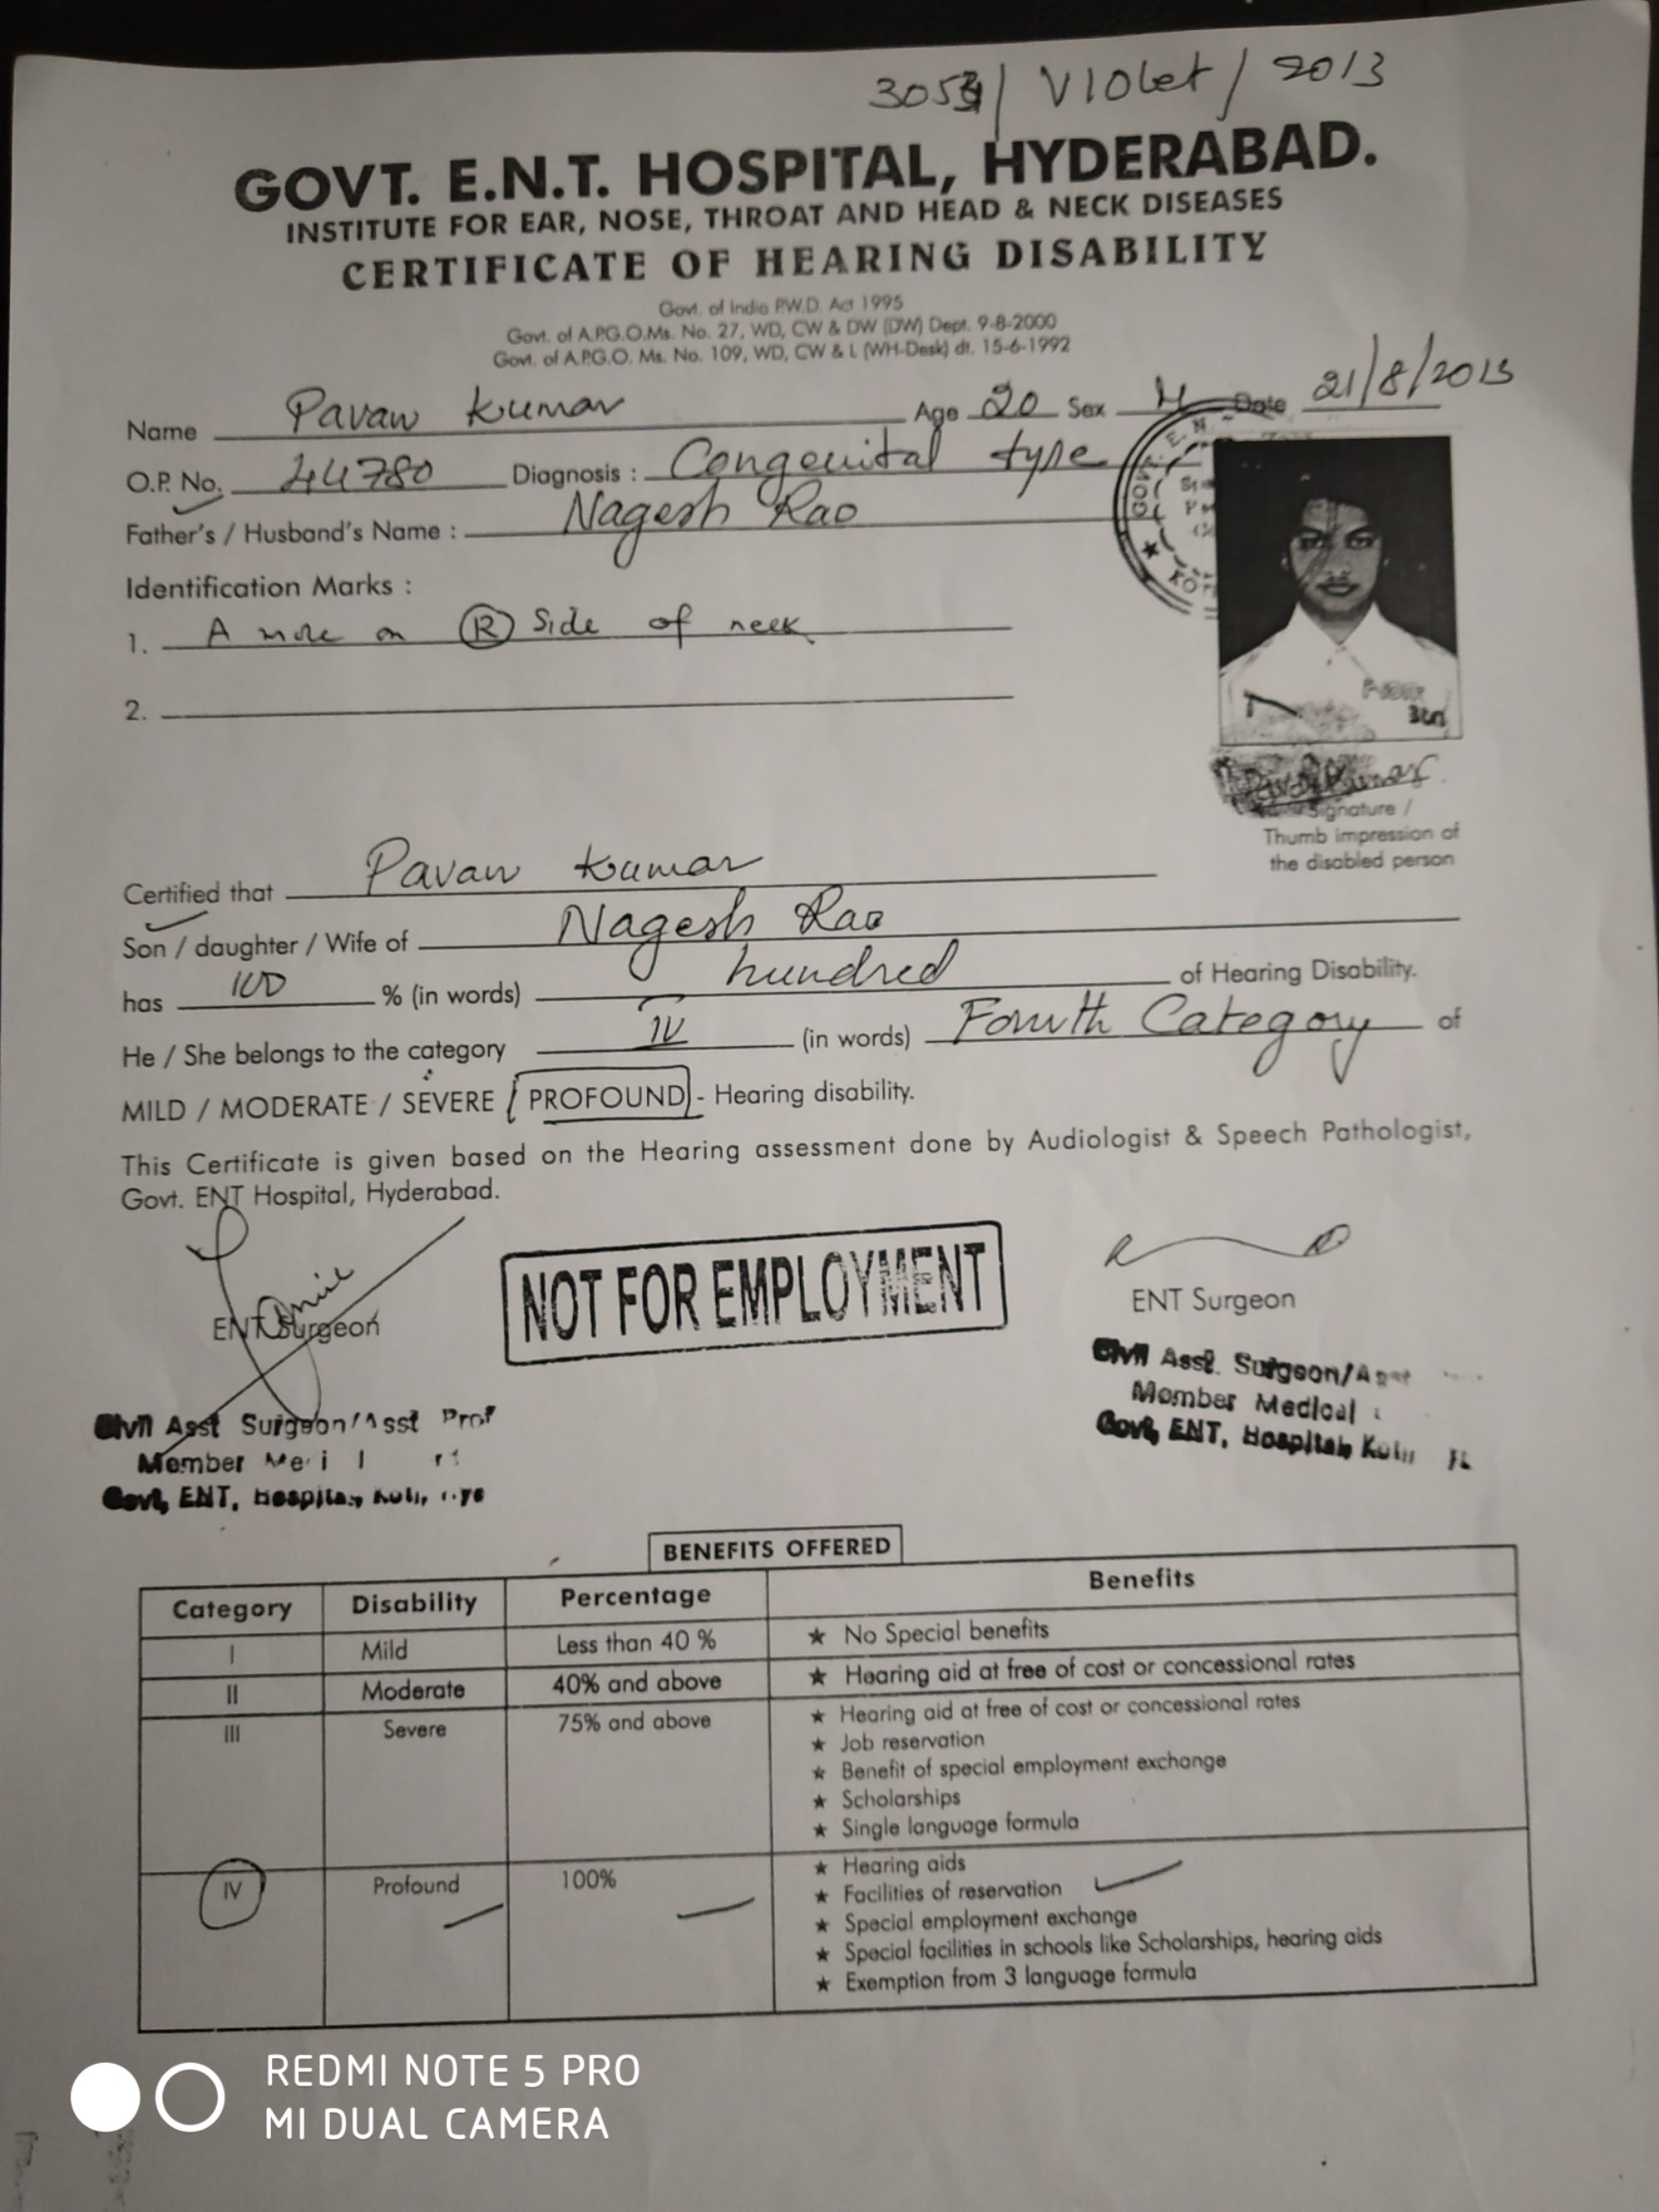 / Violet / 2013
GOVT. E.N.T. HOSPITAL, HYDERABAD.
INSTITUTE FOR EAR, NOSE, THROAT AND HEAD & NECK DISEASES
CERTIFICATE OF HEARING DISABILITY
Govt. of India P.W.D. Act 1995
Govt. of A.P.G.O.Ms. No. 27, WD, CW & DW (DW) Dept. 9-8-2000
Govt. of A.P.G.O. Ms. No. 109, WD, CW & L (WH-Desk) dt. 15-6-1992
Name Pavan Kumar Age 20 Sex M Date 21/8/2013
O.P. No. 44780 Diagnosis : Congenital type
Father's / Husband's Name : Nagesh Rao
Identification Marks :
1. A mole on (R) Side of neck
2.
Signature /
Thumb impression of
the disabled person
Certified that Pavan Kumar
Son / daughter / Wife of Nagesh Rao
has 100 % (in words) hundred of Hearing Disability.
He / She belongs to the category IV (in words) Fourth Category of
MILD / MODERATE / SEVERE / PROFOUND - Hearing disability.
This Certificate is given based on the Hearing assessment done by Audiologist & Speech Pathologist,
Govt. ENT Hospital, Hyderabad.
NOT FOR EMPLOYMENT
ENT Surgeon
Civil Asst Surgeon/Asst Prof
Member
Govt, ENT, Hospital,
ENT Surgeon
Civil Asst. Surgeon/
Member Medical
Govt, ENT, Hospital,
BENEFITS OFFERED
Category Disability Percentage Benefits
I Mild Less than 40 % ★ No Special benefits
II Moderate 40% and above ★ Hearing aid at free of cost or concessional rates
III Severe 75% and above ★ Hearing aid at free of cost or concessional rates
★ Job reservation
★ Benefit of special employment exchange
★ Scholarships
★ Single language formula
IV Profound 100% ★ Hearing aids
★ Facilities of reservation
★ Special employment exchange
★ Special facilities in schools like Scholarships, hearing aids
★ Exemption from 3 language formula
REDMI NOTE 5 PRO
MI DUAL CAMERA